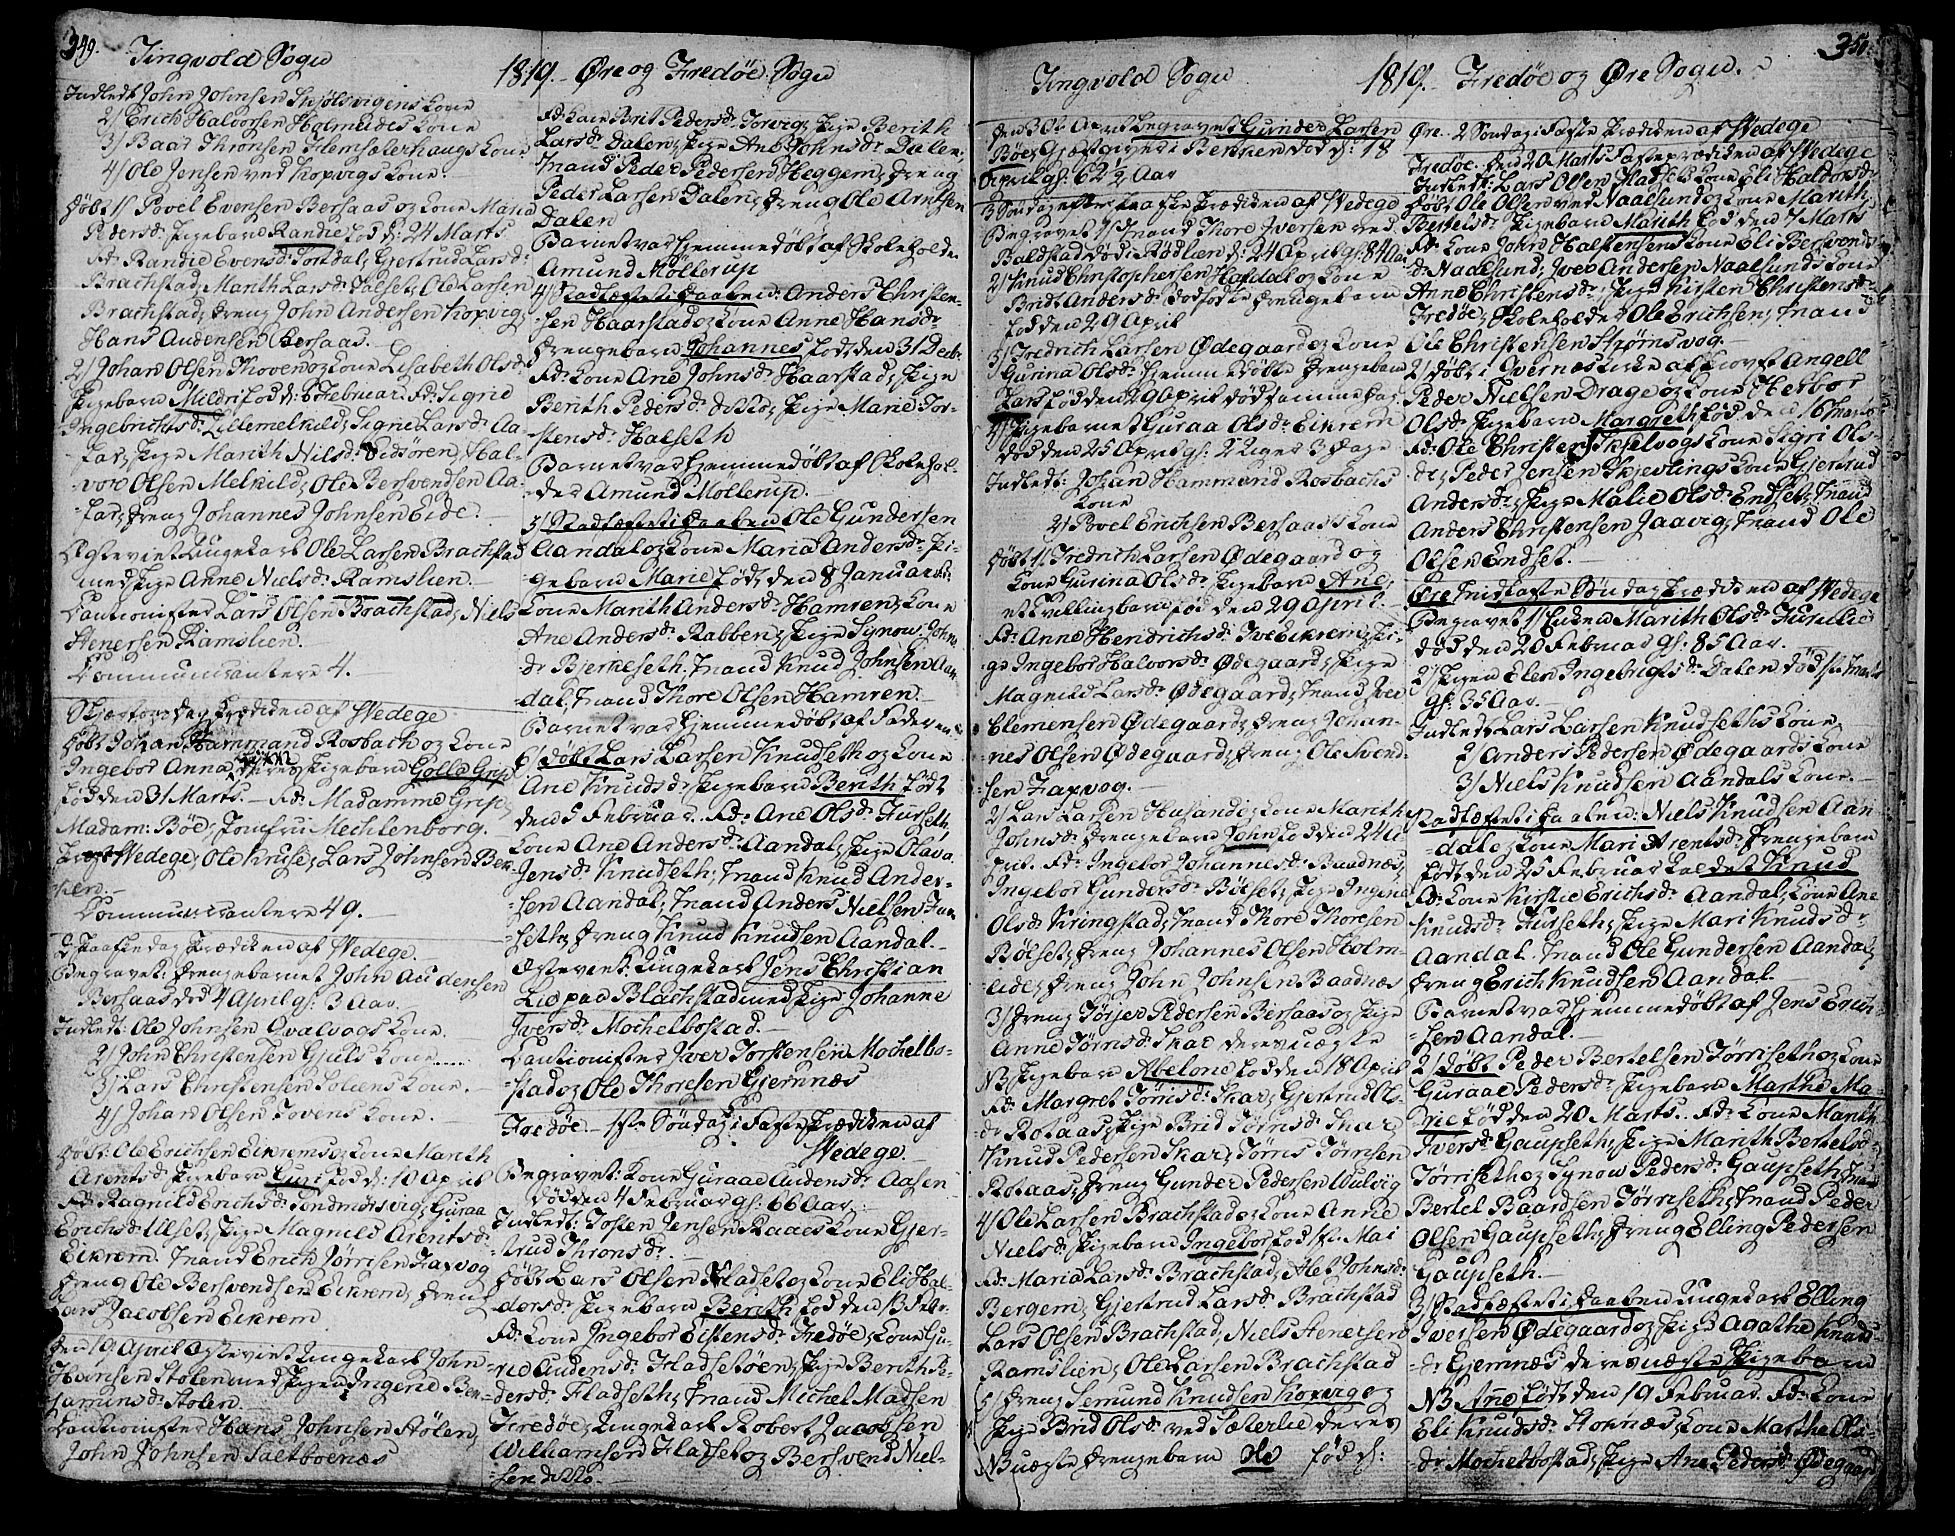 349.
Tingvold Sogn
Indledt John Johnsen Skjølsvigens Kone
2/ Erich Halvorsen Holmeides Kone
3/ Baar Thronsen Hemsæterhaugs Kone
4/ Ole Jensen ved Kopvigs Kone
Døbt 1/ Povel Evensen Bersaas og Kone Maria
Pedersdr Pigebarn Randie fød d: 24 Marts
Fdr Randie Evensdr Torsdal, Gjertrud Larsdr
Brachstad, Marith Larsdr Talset, Ole Larsen
Brachstad, Dreng John Andersen Kopvig,
Hans Audensen Bersaas.
2/ Johan Olsen Thoven og Kone Lisabeth Olsdr
Pigebarn Mildri fød d: 8 Februar Fdr Sigrid
Ingebrichtsdr Lillemelkild, Signe Larsdr Aa-
sar, Pige Marith Nilsdr Eidsøren, Hal-
vor Olsen Melkild, Ole Bersvendsen Aa-
sar, Dreng Johannes Johnsen Eide.
Ægteviet Ungekarl Ole Larsen Brachstad
med Pige Anne Nielsdr Ramslien.
Cautionister Lars Olsen Brachstad, Niels
Stenersen Ramslien.
Communicantere 4.
Skjærtorsdag Prædiken af Wedege
Døbt Johan Hammond Rosbach og Kone
Ingebor Anna Pigebarn Golla Grip
fød den 31 Marts. Fdr Madamme Grip,
Madam: Böe, Jomfru Mechlenborg.
Wedege, Ole Kruse, Lars Johnsen Ber-
sen.
Communicantere 49.
2 Paaskedag Prædiken af Wedege.
Begravet: Drengebarnet John Audensen
Bersaas død 4 April gl: 3 Aar.
Indledt: Ole Johnsen Qvalvogs Kone
2/ John Christensen Gjuls Kone
3/ Lars Christensen Soliens Kone.
4/ Johan Olsen Tovens Kone
Døbt: Ole Erichsen Eikrem og Kone Marith
Arentsdr Pigebarn Guri fød d: 10 April
Fdr Ragnild Erichsdr Sondmørsvig, Guraa
Erichsdr Ulset, Pige Magnild Arentsdr
Eikrem. Mand Erich Jørrisen Saxvog
Dreng Ole Bersvendsen Eikrem, Dreng
Lars Jacobsen Eikrem
Den 19 April Ægteviet Ungekarl John
Hansen Stølen med Pigen Ingerie Ben-
jaminsdr Stølen.
Cautionister Hans Johnsen Stølen,
John Johnsen Saltbocnæs
1819. Øre og Fredøe Sogn
Fdr Kone Brit Pedersdr Torvig, Pige Berith
Larsdr Dalen, Pige Ane Johnsdr Dalen,
Mand Peder Pedersen Heggem, Dreng
Peder Larsen Dalen, Dreng Ole Arntsen
Dalen
Barnet var hjemmedøbt af Skoleholder
Amund Möllerup
4/ Stadfæstet i Daaben: Anders Christen-
sen Haarstad og Kone Anne Hansdr
Drengebarn Johannes født den 31 Decbr.
Fdr Kone Ane Johnsdr Haarstad, Pige
Berith Pedersdr ditto, Pige Marie Tor-
stensdr Halseth
Barnet var hjemmedøbt af Skolehol-
der Amund Mollerup.
5/ Stadfæstet i Daaben Ole Gundersen
Aandal og Kone Maria Andersdr Pi-
gebarn Marie, født den 8 Januar
Kone Marith Andersdr Hamren, Kone
Ane Andersdr Rabben, Pige Synow Johns-
dr Bjerkeseth, Mand Knud Johnsen Aan-
dal, Mand Thore Olsen Hamren.
Barnet var hjemmedøbt af Faderen
6 Døbt Lars Larsen Knudseth og Kone
Ane Knudsdr Pigebarn Berith født
den 5 Februar. Fdr Ane Olsdr Furseth
Kone Ane Andersdr Aandal, Pige Olava
Jensdr Knudseth, Mand Knud Ander-
sen Aandal, Mand Anders Nielsen Fur-
seth, Dreng Knud Knudsen Aandal.
Ægteviet: Ungekarl Jens Christian
Liepae Blachstad med Pige Johanne
Iversdr Mochelbostad.
Cautionister Iver Torstensen Mochelbo-
stad og Ole Thoresen Gjemnæs
Fredøe 1ste Søndag i Faste Prædiken af
Wedege
Begravet: Kone Guraae Audensdr Aasen
død den 4 Februar gl: 66 Aar.
Indledt: Josten Jensen Raaes Kone Gjer-
trud Thronsdr
Døbt Lars Olsen Fladset og Kone Eli Hal-
dorsdr Pigebarn Berith, fød den 13 Febr.
Fdr Kone Ingebor Eistensdr Fredøe, Kone Gu-
ric Audensdr Fladsetøen, Pige Berith Pe-
dersdr Fladseth, Mand Michel Madsen
Fredøe, Ungekarl Robert Jacobsen
Williamsen Fladset og Bersvend Niel-
sen ditto.
Tingvold Sogn
Den 30te April begravet Gunder Larsen
Böe, Gjæstgiver i Bekken død d: 18
April gl: 62½ Aar
3 Søndag efter Paaske Prædiken af Wedege
Begravet 1/ Mand Thore Iversen ved
Baldstad død i Rødlien d: 24 April gl: 84 Aar
2/ Knud Christophersen Hafsdal og Kone
Bridt Andersdr dødfødte Drengebarn
fød den 29 April
3/ Fredrich Larsen Ødegaard og Kone
Gurina Olsdr hjemmedøbte Drengebarn
Lars fød den 29 April død samme Dag
4/ Pigebarnet Guraa Olsdr Eikrem
død den 25 April gl: 2 Uger 3 Dage
Indledt: Johan Hammond Rosbachs
Kone
2/ Povel Erichsen Bersaas Kone
Døbt 1/ Fredrich Larsen Ødegaard og
Kone Gurina Olsdr Pigebarn Ane,
et Tvillingbarn fød den 29 April.
Fdr Anne Hendrichsdr Eikrem, Pi-
ge Ingebor Halvorsdr Ødegaard, Pige
Magnild Larsdr Ødegaard, Mand Iver
Clemensen Ødegaard, Dreng Johan-
nes Olsen Ødegaard, Dreng Ole Svend-
sen Saxvog.
2/ Lars Larsen Husande og Kone Marith
Johnsdr Drengebarn John, fød den 24 A-
pril. Fdr Ingebor Johannesdr Baadnæs,
Ingebor Gundersdr Bölset, Pige Ingeri
Olsdr Kringstad, Mand Thore Thoresen
Bölset, Dreng Johannes Olsen Holm-
eide, Dreng John Johnsen Baadnæs
3/ Dreng Tørjer Pedersen Bersaas og Pige
Anne Tørrisdr Skar deres uægte
NB Pigebarn Abelone fød den 18 April
Fdr Margret Tørrisdr Skar, Gjertrud Ols-
dr Rotaas, Pige Brid Tørrisdr Skar
Knud Pedersen Skar, Tørris Tørrisen
Rotaas, Dreng Gunder Pedersen Wulvig
4/ Ole Larsen Brachstad og Kone Anne
Nielsdr Pigebarn Ingebor, fød 1ste Mai
Fdr Maria Larsdr Brachstad, Alet Johnsdr
Bergem, Gjertrud Larsdr Brachstad
Lars Olsen Brachstad, Niels Stenersen
Ramslien, Ole Larsen Brachstad
5/ Dreng Semund Knudsen Kopvig og
Pige Brid Olsdr ved Sæterlie deres
NB uægte Drengebarn Ole fød d:
350.
1819. Fredøe og Øre Sogn.
Øre. 2 Søndag i Faste Prædiken af Wedege
Fredøe. Den 20 Marts Fasteprædiken af Wedege
Indledt: Lars Olsen Fladsets Kone Eli Haldorsdr
Døbt Ole Olsen ved Naalsund og Kone Marith
Bertelsdr Pigebarn Marith fød den 7 Marts
Fdr Kone John Halstensens Kone Eli Bersvends-
dr Naalsund, Iver Andersen Naalsunds Kone
Anne Christensdr Pige Kirsten Christensdr
Fredøe, Skoleholder Ole Erichsen, Mand
Ole Christensen Strømsvog.
2/ Døbt i Qvernæs Kirke af Provst Angell
Peder Nielsen Drage og Kone Herbor
Olsdr Pigebarn Margreth, fød den 16 Marts
Fdr Ole Christens Skjelvogs Kone Sigri Ols-
dr, Peder Jensen Skjevlings Kone Gjertrud
Andersdr, Pige Malie Olsdr Endset, Mand
Anders Christensen Jaavig, Mand Ole
Olsen Endset.
Øre Midfaste Söndag Prædiken af Wedege
Begravet 1/ Enken Marith Olsdr Furulie
død den 20 Februar gl: 85 Aar.
2/ Pigen Elen Ingebrigtsdr Dalen død 1ste Marts
gl: 35 Aar.
Indledt Lars Larsen Knudseths Kone,
2/ Anders Pedersen Ødegaards Kone
3/ Niels Knudsen Aandals Kone.
Stadfæstet i Daaben: Niels Knudsen Aan-
dal og Kone Mari Arentsdr Drengebarn
født den 25 Februar kaldet Knud
Fdr Kone Kirstie Erichsdr Aandal, Kone Ane
Knudsdr Furseth, Pige Mari Knudsdr
Aandal. Mand Ole Gundersen Aandal,
Dreng Erich Knudsen Aandal.
Barnet var hjemmedøbt af Jens Erich-
sen Aandal.
2/ Døbt Peder Bertelsen Törriseth og Kone
Guraae Pedersdr Pigebarn Marthe Ma-
rie fød den 20 Marts. Fdr Kone Marith
Iversdr Gaupseth, Pige Marith Bertelsdr
Törriseth og Synow Pedersdr Gaupseth, Mand
Bertel Baardsen Törriseth, Mand Peder
Olsen Gaupseth, Dreng Elling Pedersen
Gaupseth.
3/ Stadfæstet i Daaben Ungekarl Elling
Iversen Ødegaard og Pige Agathe Knuds-
dr Gjemnæs deres uægte Pigebarn
NB Ane født den 19 Februar. Fdr Kone
Eli Knudsdr Hornæs, Kone Marthe Ols-
dr Mochelbostad, Pige Ane Pedersdr Ødegaard